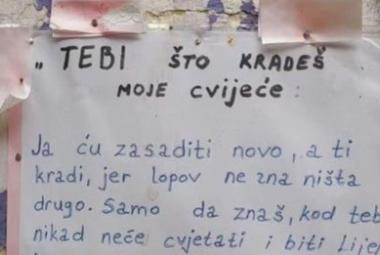 „ TEBI ŠTO KRADEŠ
MOJE cvijeće :
Ja ću zasaditi novo, a ti
kradi, jer lopov ne zna ništa
drugo. Samo da znaš, kod teb
nikad neće cvjetati i biti lijep